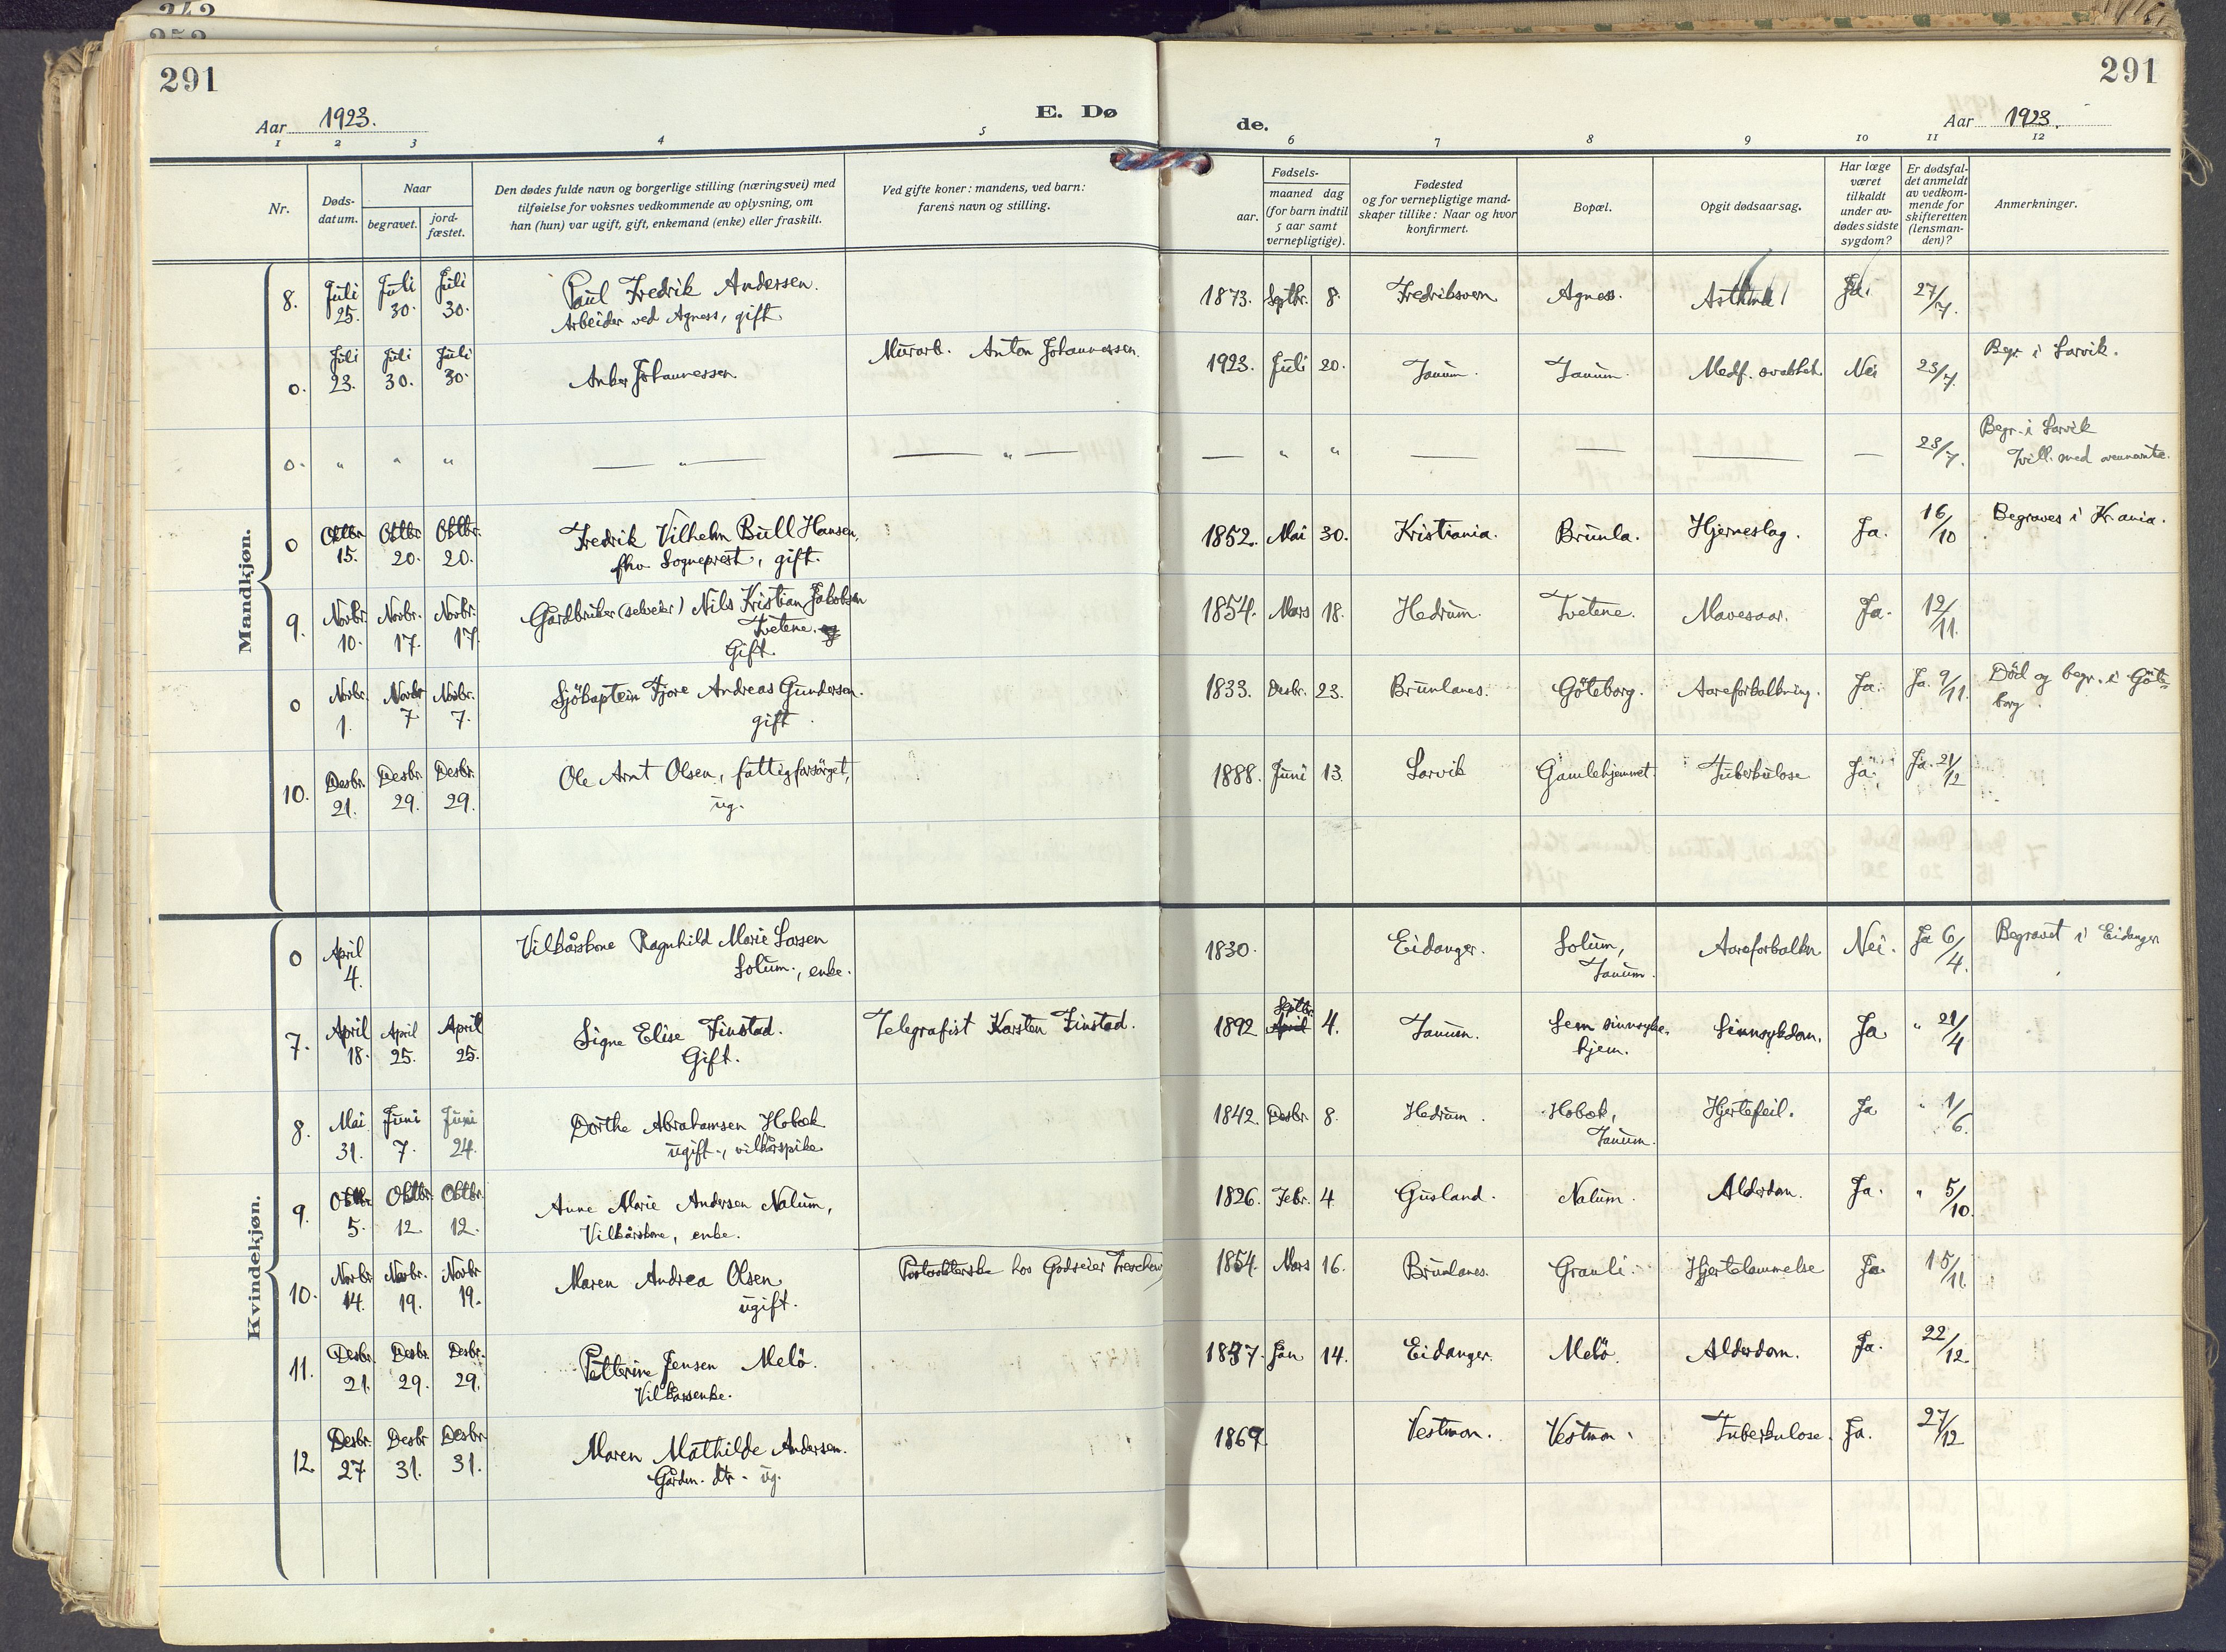 291
Aar 1923.
E. Dø
1 2 3 4 5
Nr.
Døds-
datum.
Naar
begravet.
jord-
fæstet.
Den dødes fulde navn og borgerlige stilling (næringsvei) med
tilføielse for voksnes vedkommende av oplysning, om
han (hun) var ugift, gift, enkemand (enke) eller fraskilt.
Ved gifte koner: mandens, ved barn:
farens navn og stilling.
291
de.
Aar 1923.
6 7 8 9 10 11 12
Fødsels-
aar.
maaned dag
(for barn indtil
5 aar samt
vernepligtige).
Fødested
og for vernepligtige mand-
skaper tillike: Naar og hvor
konfirmert.
Bopæl.
Opgit dødsaarsag.
Har læge
været
tilkaldt
under av-
dødes sidste
sygdom?
Er dødsfal-
det anmeldt
av vedkom-
mende for
skifteretten
(lensman-
den)?
Anmerkninger.
Mandkjøn.
8. Juli 25. Juli 30. Juli 30. Paul Fredrik Andersen.
Arbeider ved Agness, gift
1873. Septbr. 8. Fredriksvern Agness. Asthma Ja. 27/7.
0. Juli 23. Juli 30. Juli 30. Anker Johannessen. Murarb. Anton Johannessen.
1923. Juli 20. Tanum. Tanum. Medf. svakhet. Nei 23/7. Begr. i Larvik.
0. " " " — " — — " — — " " — — — — 23/7. Begr. i Larvik
Tvill. med ovennevnte.
0 Oktbr. 15. Oktbr. 20. Oktbr. 20. Fredrik Vilhelm Bull Hansen,
fhv. Sogneprest, gift.
1852. Mai 30. Kristiania. Brunla. Hjerneslag. Ja. 16/10 Begraves i Kr.ania.
9. Novbr. 10. Novbr. 17. Novbr. 17. Gårdbruker (selveier) Nils Kristian Jakobsen
Tvetene.
Gift.
1854. Mars 18. Hedrum. Tvetene. Mavesaar. Ja. 12/11.
0 Novbr. 1. Novbr. 7. Novbr. 7. Sjökaptein Tjore Andreas Gundersen.
gift.
1833. Desbr. 23. Brunlanes. Göteborg. Aareforkalkning. Ja. Ja. 9/11. Död og begr. i Göte-
borg.
10. Desbr. 21. Desbr. 29. Desbr. 29. Ole Arnt Olsen, fattigforsörget,
ug.
1888. Juni 13. Larvik Gamlehjemmet. Tuberkulose Ja. Ja. 21/12
Kvindekjøn.
0 April 4. Vilkårskone Ragnhild Marie Larsen
Solum., enke.
1830. Eidanger. Solum,
Tanum. Aareforkalkn. Nei. Ja 6/4. Begravet i Eidanger
7. April 18. April 25. April 25. Signe Elise Finstad.
Gift. Telegrafist Karsten Finstad.
1892 Septbr. 4. Tanum. Sem sinnsyke-
hjem. Sinnsykdom. Ja " 21/4
8. Mai 31. Juni 7. Juni 24. Dorthe Abrahamsen Hobæk
ugift., vilkårspike.
1842. Desbr. 8. Hedrum. Hobæk,
Tanum. Hjertefeil. Ja " 1/6.
9. Oktbr. 5. Oktbr. 12. Oktbr. 12. Anne Marie Andersen Nalum,
Vilkårskone, enke.
1826. Febr. 4. Gusland. Nalum. Alderdom. Ja. " 5/10.
10. Novbr. 14. Novbr. 19. Novbr. 19. Maren Andrea Olsen
ugift. hos Godseier Treschow
1854. Mars 16. Brunlanes. Grauli. Hjertelammelse Ja. 15/11.
11. Desbr. 21. Desbr. 29. Desbr. 29. Petterine Jensen Melö.
Vilkårsenke.
1837. Jan 14. Eidanger. Melö. Alderdom. Ja. 22/12.
12. Desbr. 27 Desbr 31. Desbr. 31. Maren Mathilde Andersen.
Gårdm. dtr. ug.
1869. Vestmon. Vestmon. Tuberkulose. Ja. 27/12